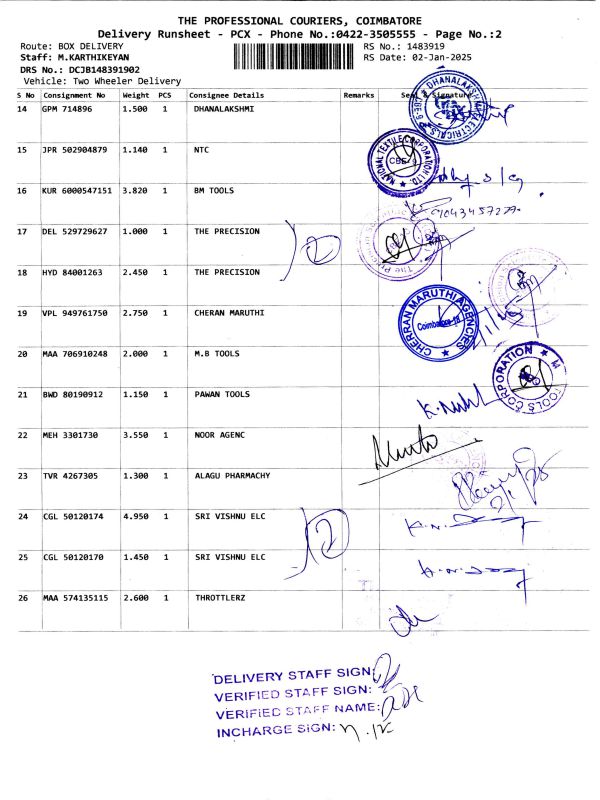 THE PROFESSIONAL COURIERS, COIMBATORE
Delivery Runsheet - PCX - Phone No.:0422-3505555 - Page No.:2
Route: BOX DELIVERY
RS No.: 1483919
Staff: M.KARTHIKEYAN
RS Date: 02-Jan-2025
DRS No.: DCJB148391902
Vehicle: Two Wheeler Delivery
S No Consignment No Weight PCS Consignee Details Remarks Seal & Signature
14 GPM 714896 1.500 1 DHANALAKSHMI
15 JPR 502904879 1.140 1 NTC
NATIONAL TEXTILE CORPORATION LTD.
CBE-9
16 KUR 6000547151 3.820 1 BM TOOLS
9043457279
17 DEL 529729627 1.000 1 THE PRECISION
2
18 HYD 84001263 2.450 1 THE PRECISION
19 VPL 949761750 2.750 1 CHERAN MARUTHI
CHERRAN MARUTHI AGENCIES
20 MAA 706910248 2.000 1 M.B TOOLS
TOOLS CORPORATION
21 BWD 80190912 1.150 1 PAWAN TOOLS
22 MEH 3301730 3.550 1 NOOR AGENC
23 TVR 4267305 1.300 1 ALAGU PHARMACHY
2/1/25
24 CGL 50120174 4.950 1 SRI VISHNU ELC
2
25 CGL 50120170 1.450 1 SRI VISHNU ELC
26 MAA 574135115 2.600 1 THROTTLERZ
DELIVERY STAFF SIGN:
VERIFIED STAFF SIGN:
VERIFIED STAFF NAME:
INCHARGE SIGN: